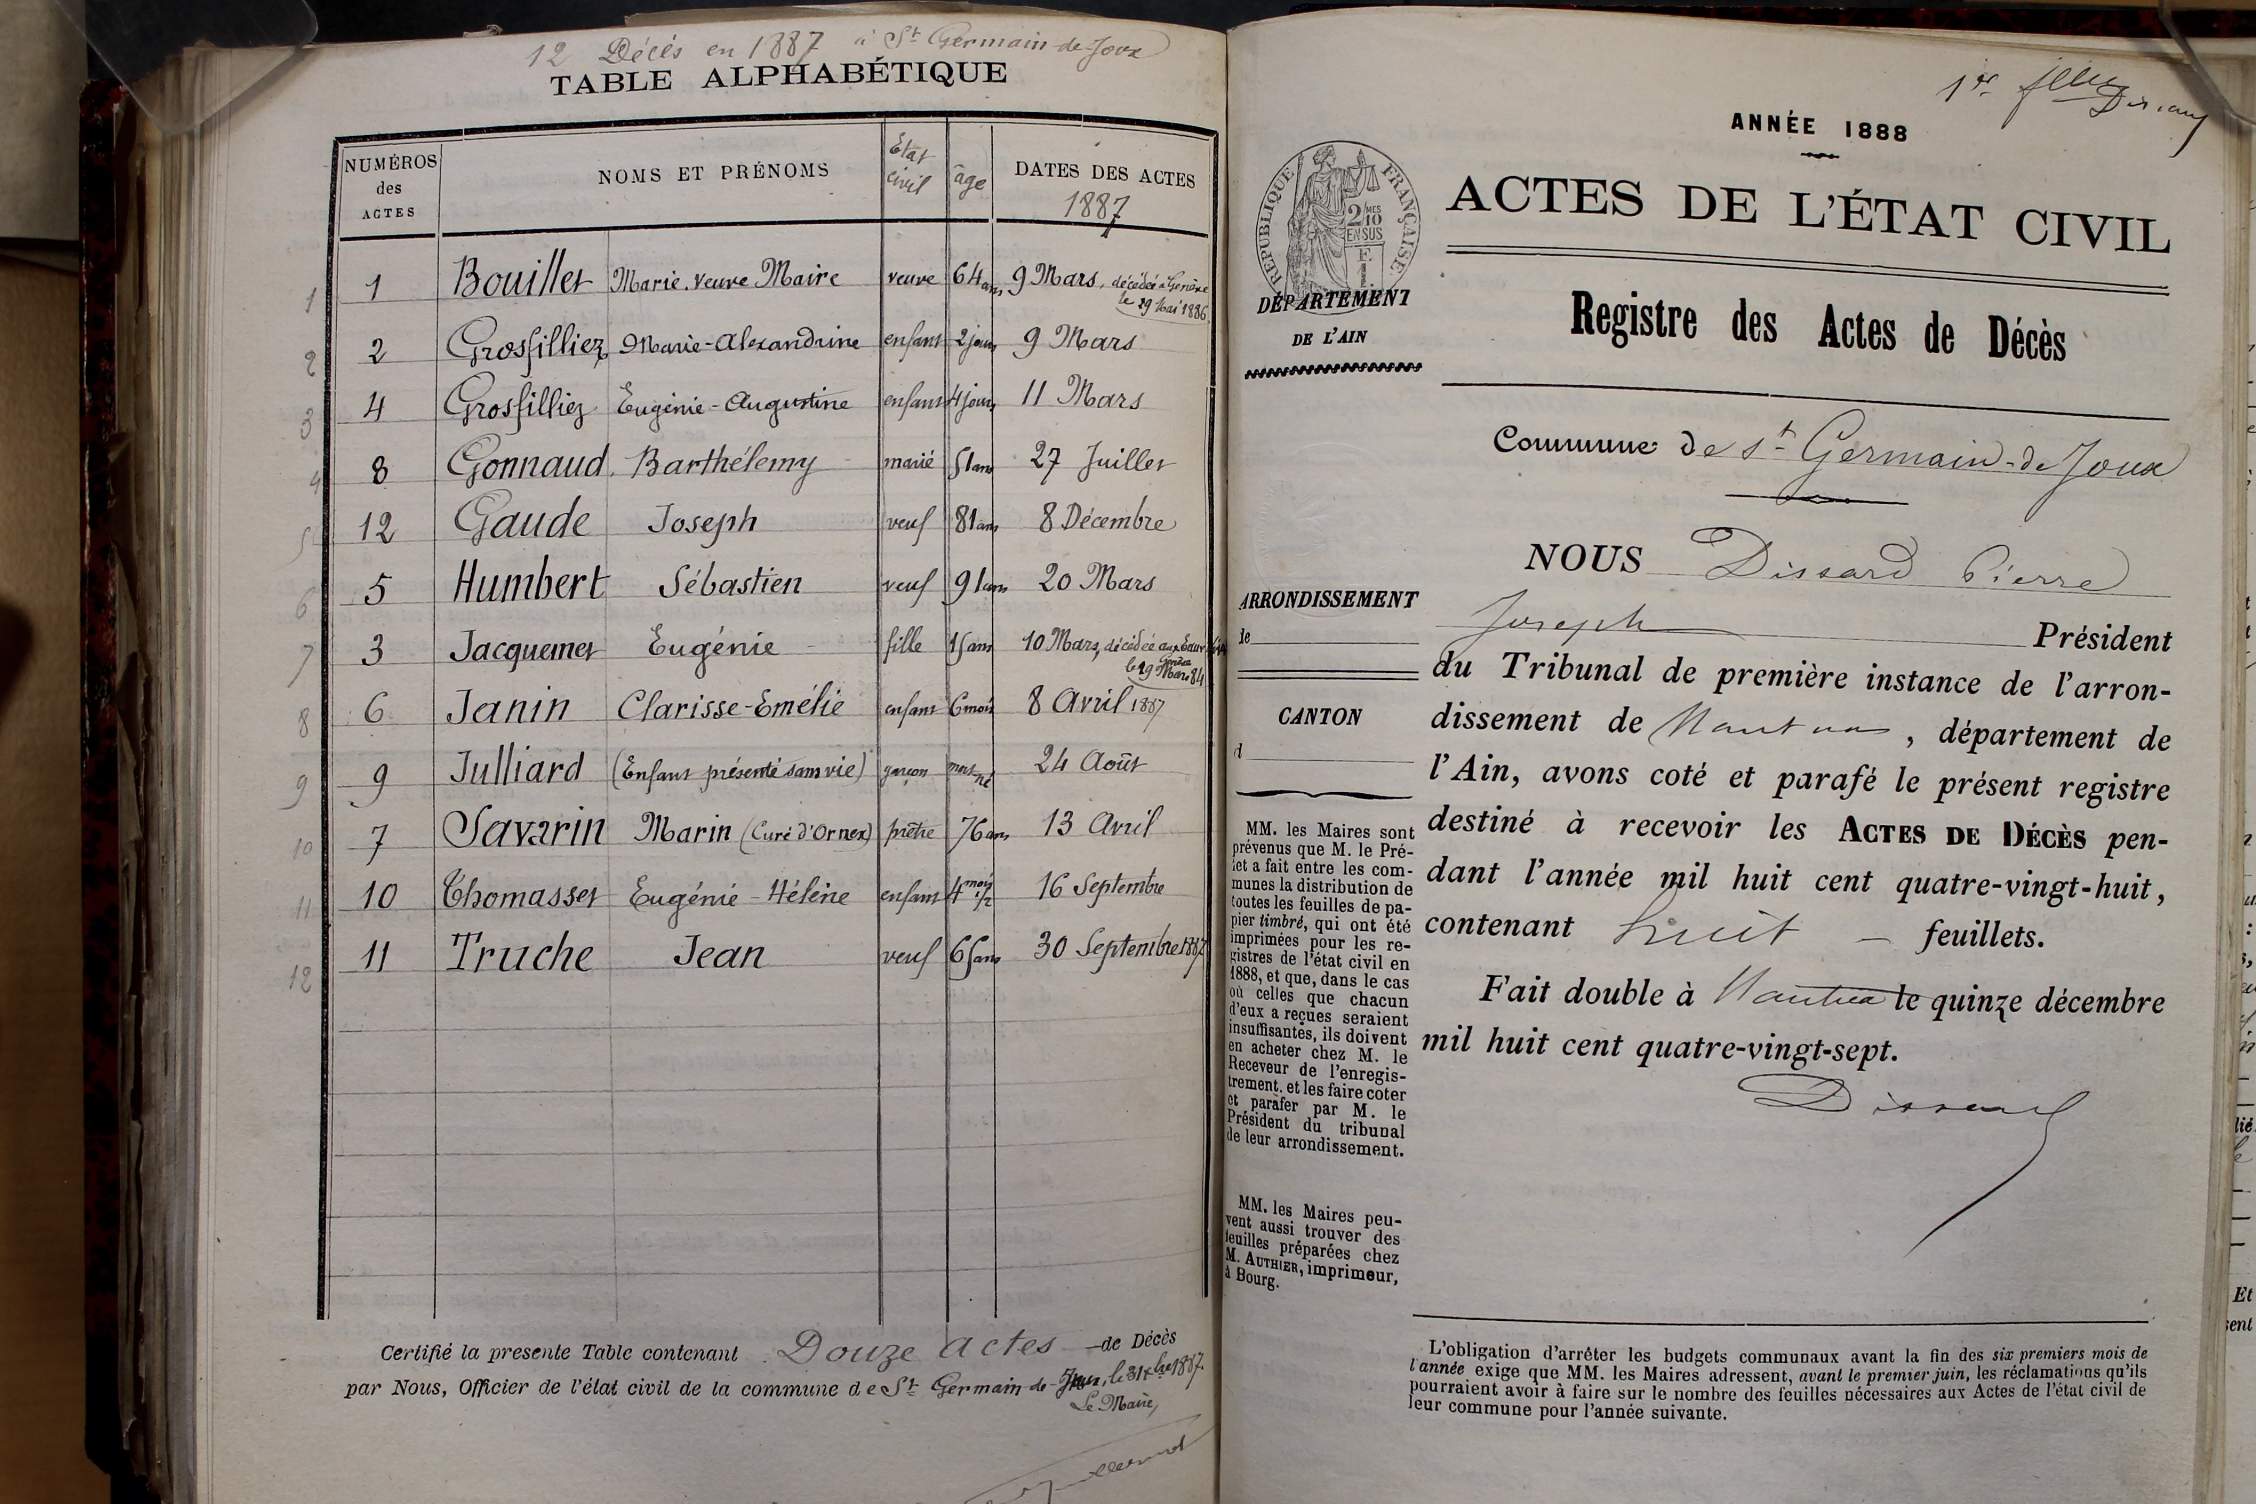 12 Décès en 1887 à St Germain-de-Joux
TABLE ALPHABÉTIQUE
NUMÉROS des ACTES NOMS ET PRÉNOMS Etat civil âge DATES DES ACTES 1887
1 1 Bouillet Marie. veuve Maire veuve 64 ans 9 Mars, décédée à Genève le 29 Mai 1886
2 2 Grosfilliez Marie-Alexandrine enfant 2 jours 9 Mars
3 4 Grosfilliez Eugénie-Augustine enfant 4 jours 11 Mars
4 8 Gonnaud Barthélemy marié 51 ans 27 Juillet
5 12 Gaude Joseph veuf 81 ans 8 Décembre
6 5 Humbert Sébastien veuf 91 ans 20 Mars
7 3 Jacquemet Eugénie fille 15 ans 10 Mars, décédée aux Eaux Vives Genève le 29 Mars 84
8 6 Janin Clarisse-Emélie enfant 6 mois 8 Avril 1887
9 9 Julliard (Enfant présenté sans vie) garçon mort né 24 Août
10 7 Savarin Marin (Curé d'Ornex) prêtre 76 ans 13 Avril
11 10 Thomasset Eugénie-Hélène enfant 4 mois 1/2 16 Septembre
12 11 Truche Jean veuf 65 ans 30 Septembre 1887
Certifié la presente Table contenant Douze actes de Décès
par Nous, Officier de l'état civil de la commune de St Germain-de-Joux, le 31 xbre 1887.
Le Maire,
1er
ANNÉE 1888
ACTES DE L'ÉTAT CIVIL
RÉPUBLIQUE FRANÇAISE
2/10 MES EN SUS
F. 1.
DÉPARTEMENT
DE L'AIN
Registre des Actes de Décès
Commune de St Germain-de Joux
NOUS Dissard Pierre
Joseph Président
du Tribunal de première instance de l'arron-
dissement de Nantua, département de
l'Ain, avons coté et parafé le présent registre
destiné à recevoir les ACTES DE DÉCÈS pen-
dant l'année mil huit cent quatre-vingt-huit,
contenant huit feuillets.
Fait double à Nantua le quinze décembre
mil huit cent quatre-vingt-sept.
Dissard
ARRONDISSEMENT
de
CANTON
d
MM. les Maires sont
prévenus que M. le Pré-
fet a fait entre les com-
munes la distribution de
toutes les feuilles de pa-
pier timbré, qui ont été
imprimées pour les re-
gistres de l'état civil en
1888, et que, dans le cas
où celles que chacun
d'eux a reçues seraient
insuffisantes, ils doivent
en acheter chez M. le
Receveur de l'enregis-
trement, et les faire coter
et parafer par M. le
Président du tribunal
de leur arrondissement.
MM. les Maires peu-
vent aussi trouver des
feuilles préparées chez
M. AUTHIER, imprimeur,
à Bourg.
L'obligation d'arrêter les budgets communaux avant la fin des six premiers mois de
l'année exige que MM. les Maires adressent, avant le premier juin, les réclamations qu'ils
pourraient avoir à faire sur le nombre des feuilles nécessaires aux Actes de l'état civil de
leur commune pour l'année suivante.